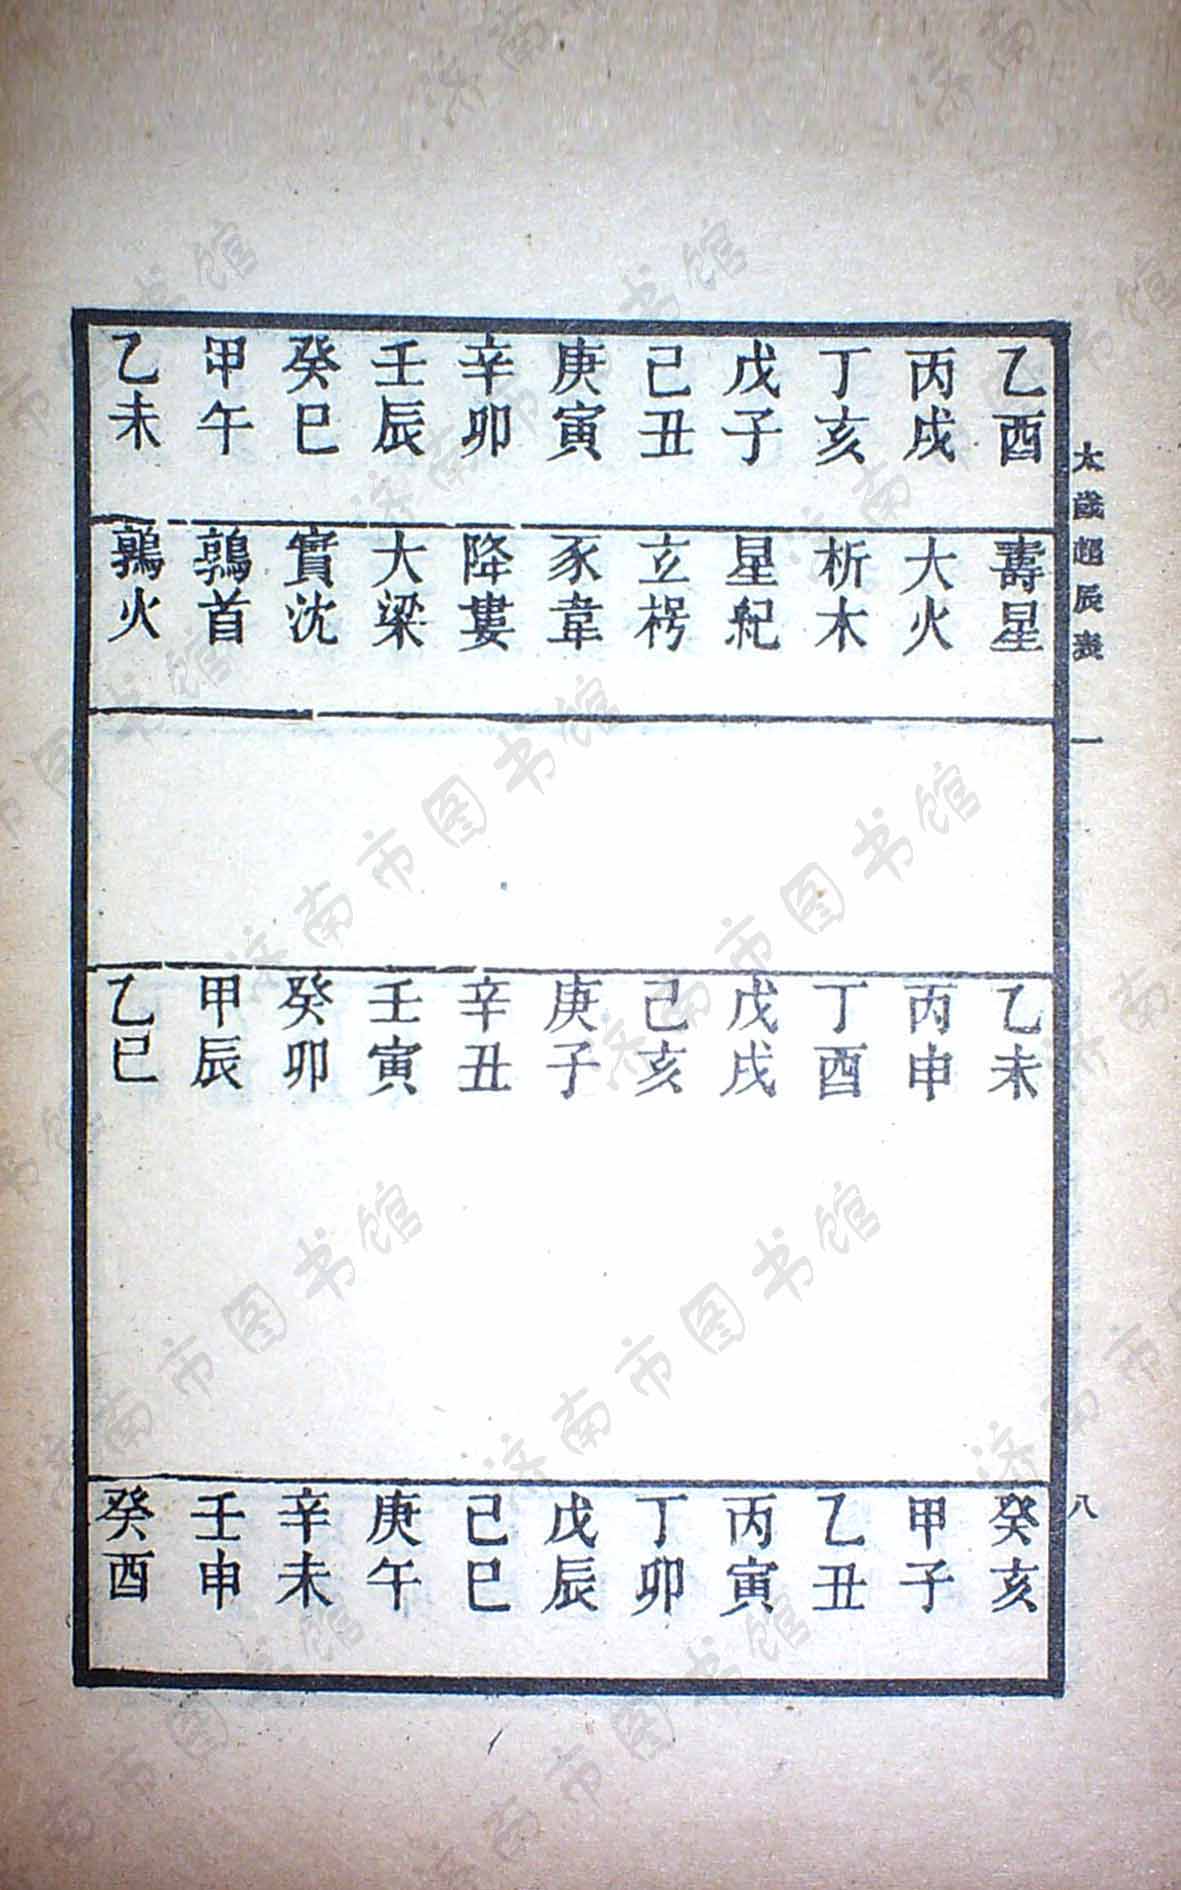 太歲超辰表 一 八
乙酉 壽星 乙未 癸亥
丙戌 大火 丙申 甲子
丁亥 析木 丁酉 乙丑
戊子 星紀 戊戌 丙寅
己丑 立枵 己亥 丁卯
庚寅 豕韋 庚子 戊辰
辛卯 降婁 辛丑 己巳
壬辰 大梁 壬寅 庚午
癸巳 實沈 癸卯 辛未
甲午 鶉首 甲辰 壬申
乙未 鶉火 乙巳 癸酉
济南市图书馆